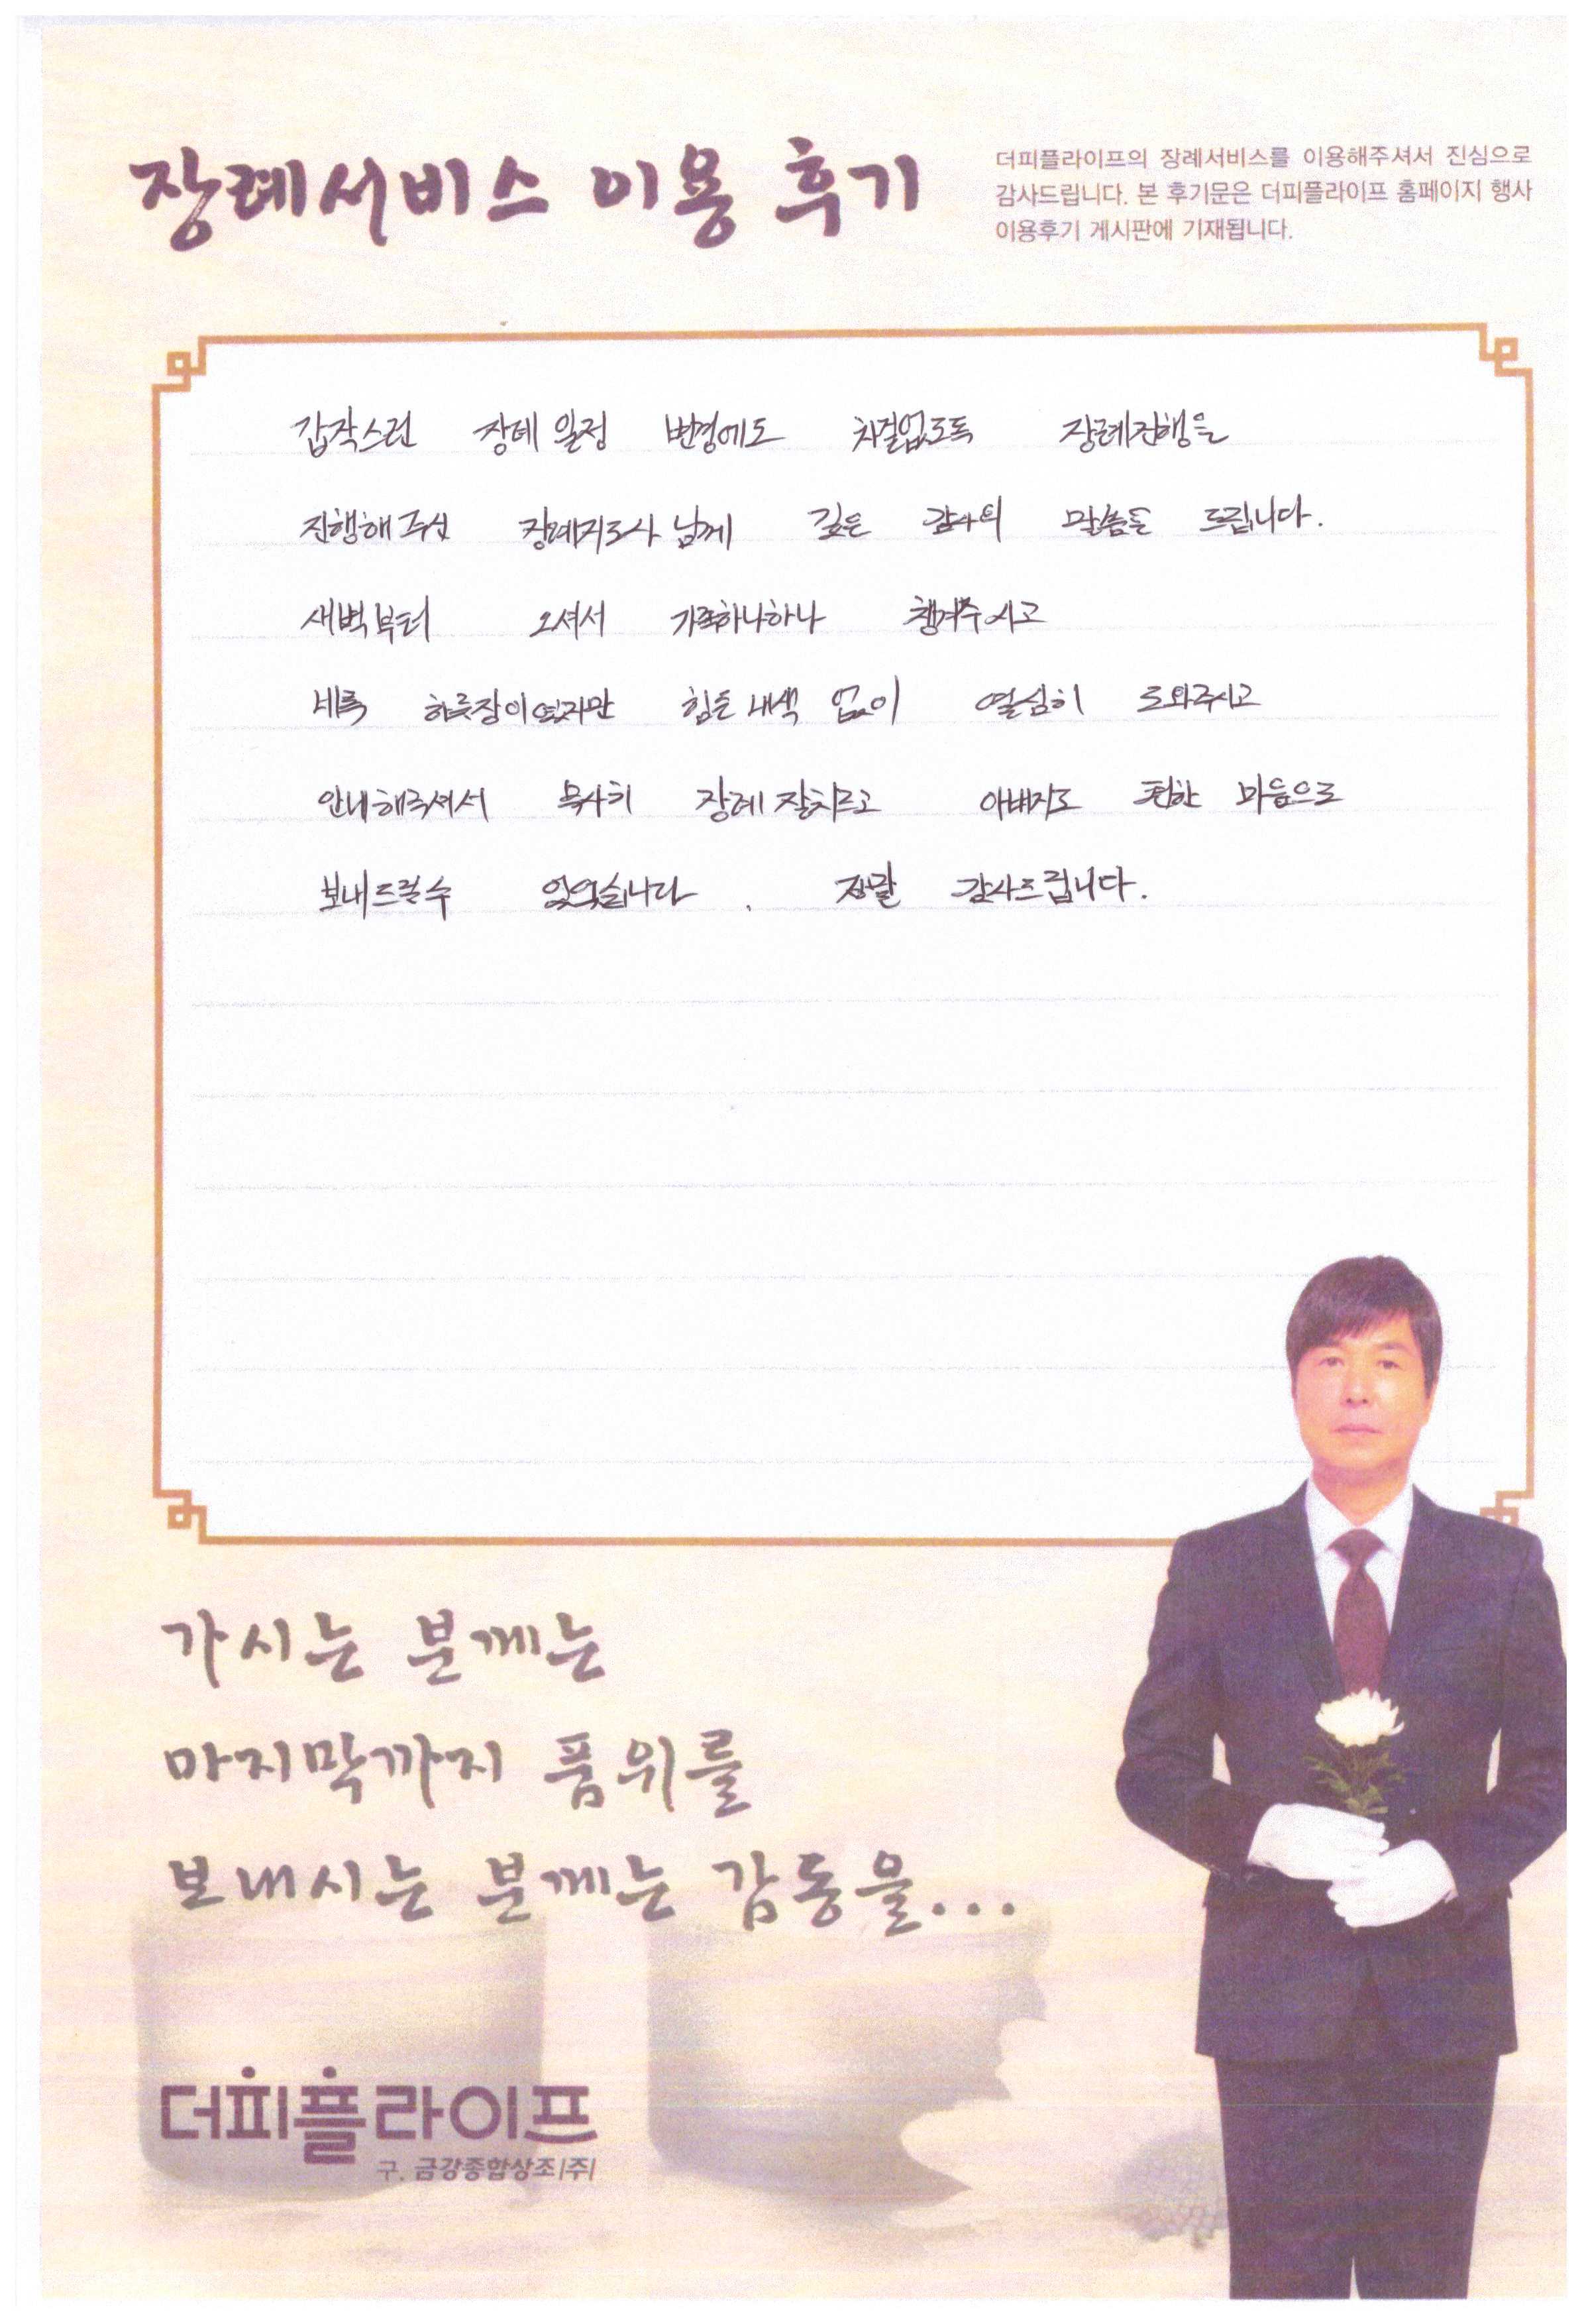 장례서비스 이용 후기
더피플라이프의 장례서비스를 이용해주셔서 진심으로
감사드립니다. 본 후기문은 더피플라이프 홈페이지 행사
이용후기 게시판에 기재됩니다.
갑작스런 장례 일정 변경에도 차질없도록 장례진행을
진행해 주신 장례지도사 님께 깊은 감사의 말씀을 드립니다.
새벽부터 오셔서 가족하나하나 챙겨주시고
비록 하룻장이였지만 힘든 내색 없이 열심히 도와주시고
안내해주셔서 무사히 장례 잘치르고 아버지도 편한 마음으로
보내드릴수 있었습니다. 정말 감사드립니다.
가시는 분께는
마지막까지 품위를
보내시는 분께는 감동을...
더피플라이프
구. 금강종합상조(주)